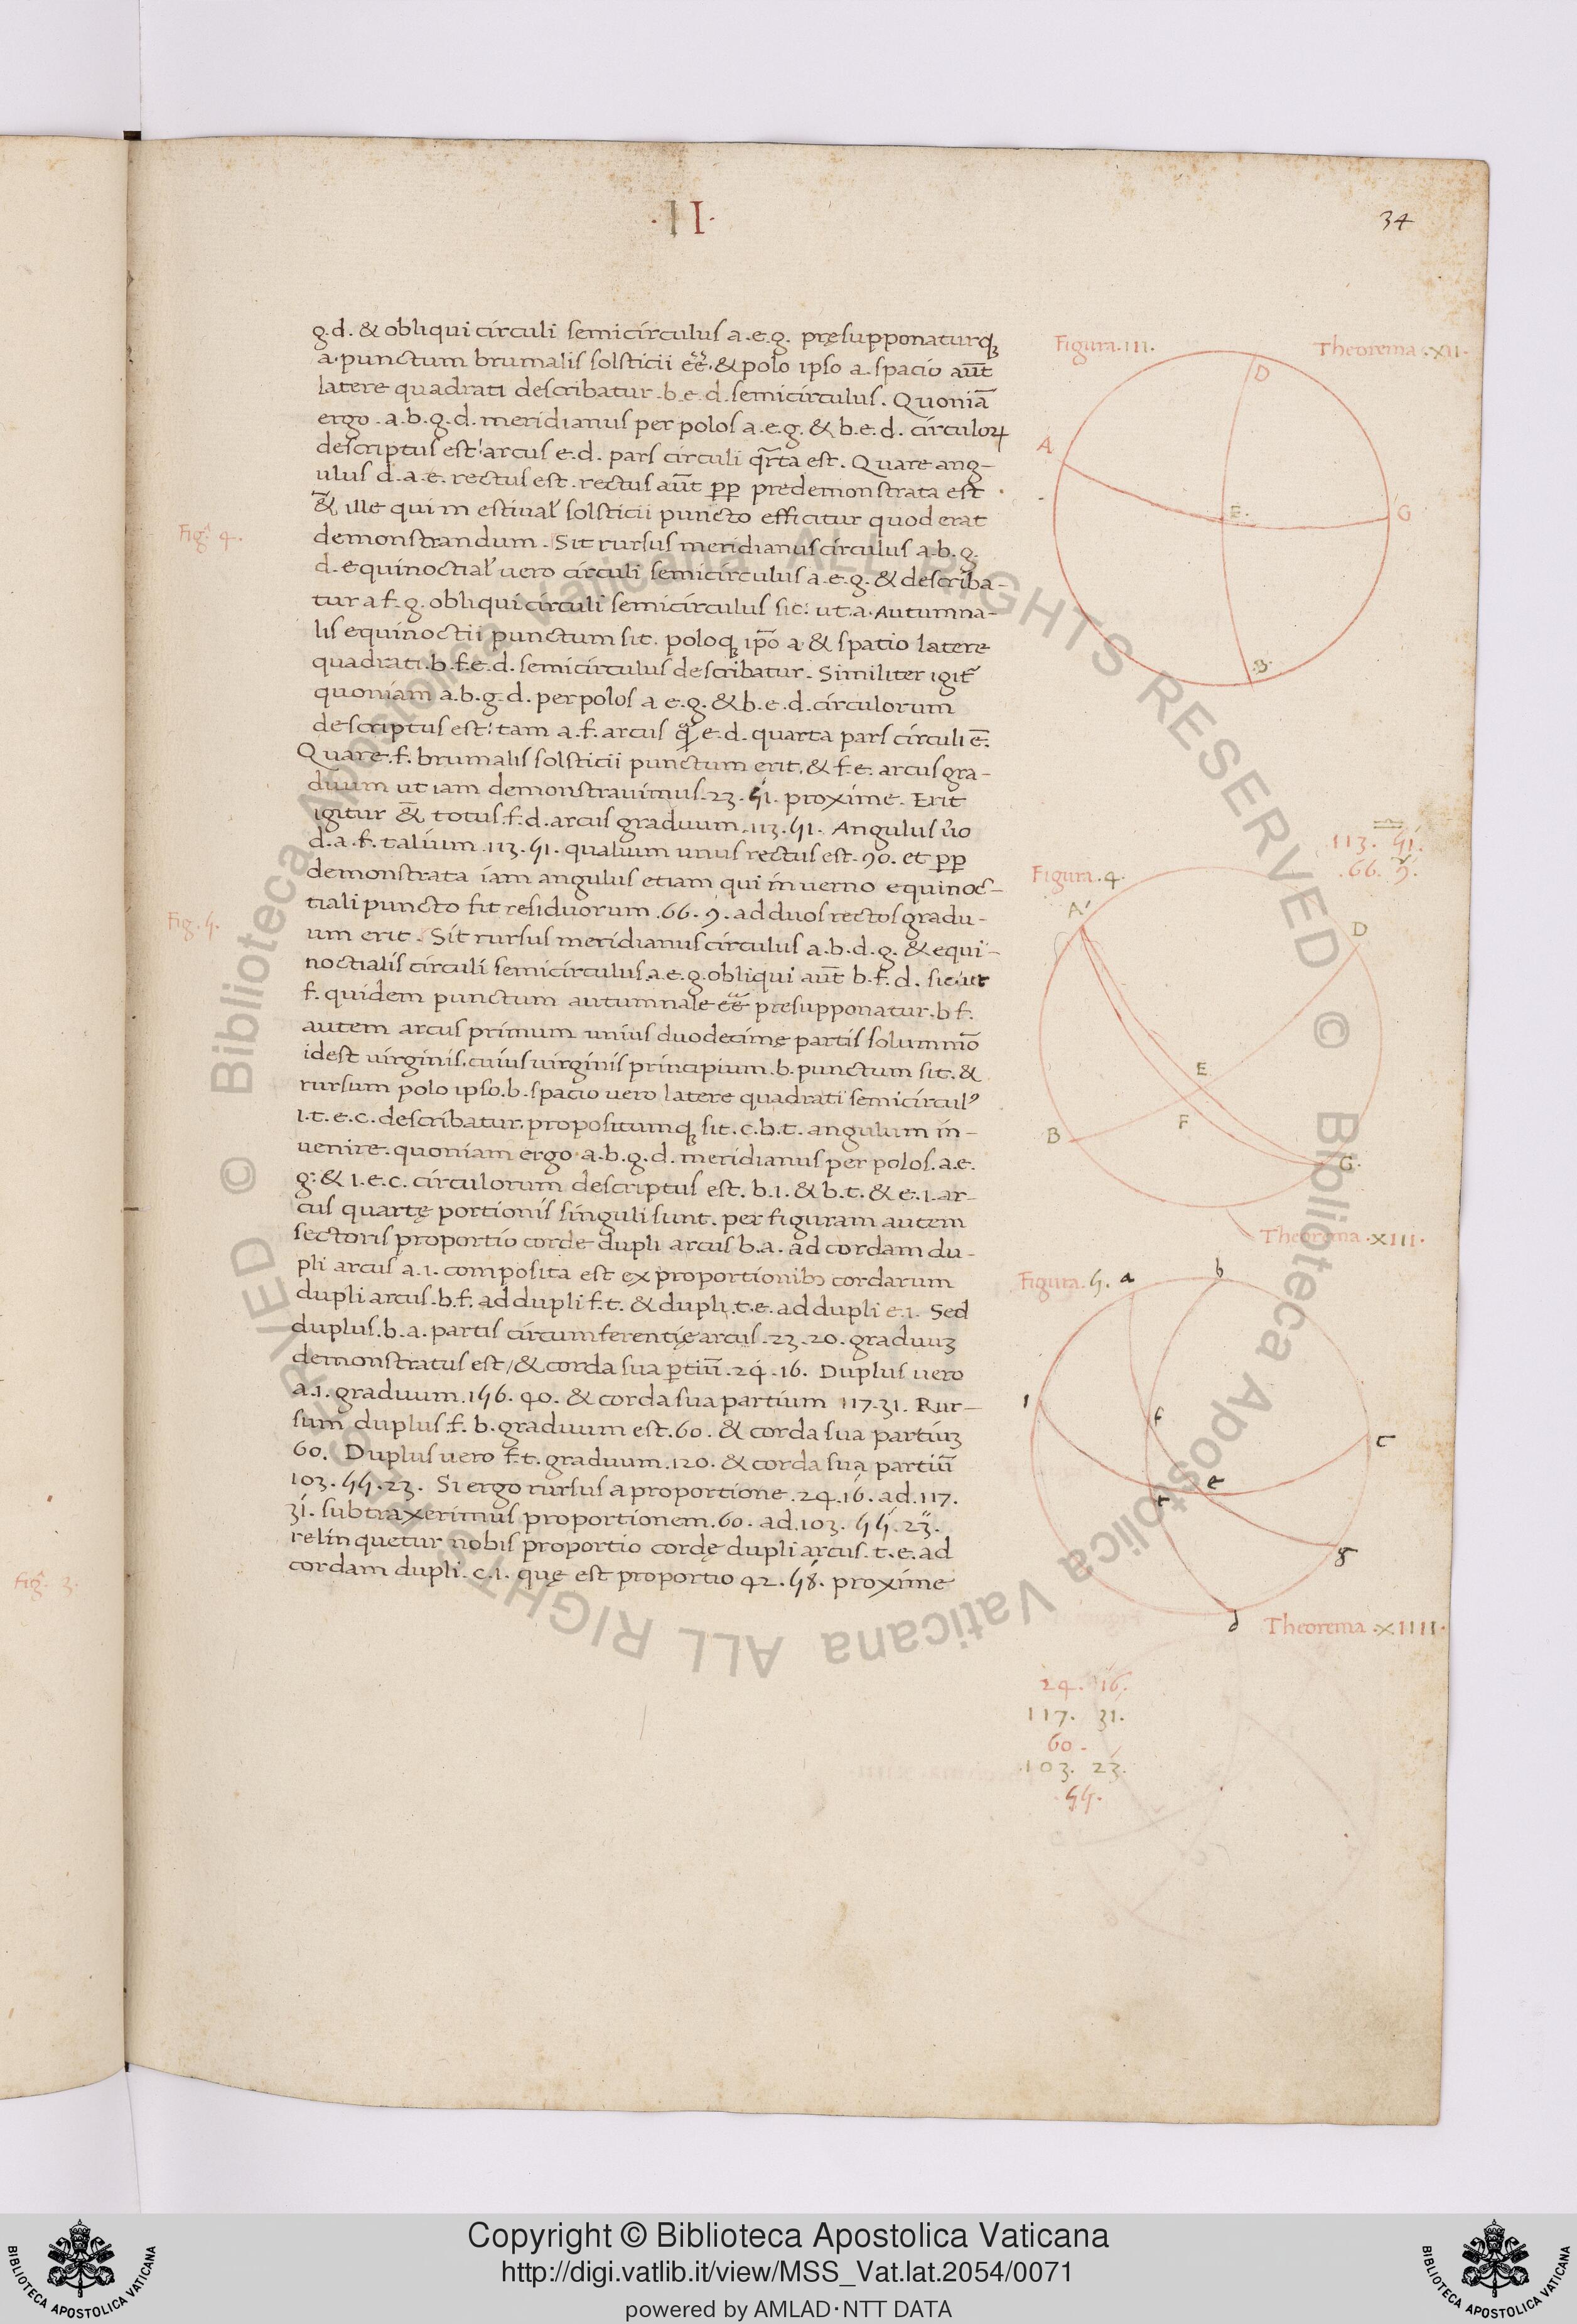 ·II·
34
g.d. & obliqui circuli semicirculus a.e.g. pręsupponaturqꝫ
a. punctum brumalis solsticii eē. & polo ipso a. spacio aūt
latere quadrati describatur .b.e.d. semicirculus. Quoniā
ergo .a.b.g.d. meridianus per polos a.e.g. & b.e.d. circuloꝝ
descriptus est: arcus e.d. pars circuli qr̄ta est. Quare ang-
ulus d.a.e. rectus est. rectus aūt pp̄ predemonstrata est
&̄ ille qui in estiual' solsticii puncto efficitur quod erat
demonstrandum. Sit rursus meridianus circulus a.b.g.
d. equinoctial' uero circuli semicirculus a.e.g. & describa-
tur a f.g. obliqui circuli semicirculus sic: ut .a. Autumna-
lis equinoctii punctum sit. poloqꝫ ip̄o a. & spatio latere
quadrati .b.f.e.d. semicirculus describatur. Similiter igit̄
quoniam a.b.g.d. per polos a e.g. & b.e.d. circulorum
descriptus est: tam a.f. arcus q̄ e.d. quarta pars circuli ē.
Quare .f. brumalis solsticii punctum erit. & f.e. arcus gra-
duum ut iam demonstrauimus .23.51. proxime. Erit
igitur &̄ totus .f.d. arcus graduum .113.51. Angulus ūo
d.a.f. talium .113.51. qualium unus rectus est .90. et pp̄
demonstrata iam angulus etiam qui in uerno equinoc-
tiali puncto fit residuorum .66.9. ad duos rectos gradu-
um erit. Sit rursus meridianus circulus a.b.d.g. & equi-
noctialis circuli semicirculus .a.e.g. obliqui aūt b.f.d. sic: ut
f. quidem punctum autumnale eē presupponatur. b f.
autem arcus primum unius duodecimę partis solummō
idest uirginis. cuius uirginis principium .b. punctum sit. &
rursum polo ipso .b. spacio uero latere quadrati semicircul9
I.t.e.c. describatur. propositumqꝫ sit .c.b.t. angulum in-
uenire. quoniam ergo .a.b.g.d. meridianus per polos .a.e.
g. & I.e.c. circulorum descriptus est. b.I. & b.t. & e.I. ar-
cus quartę portionis singuli sunt. per figuram autem
sectoris proportio corde dupli arcus b.a. ad cordam du-
pli arcus a.I. composita est ex proportionibꝫ cordarum
dupli arcus .b.f. ad dupli f.t. & dupli .t.e. ad dupli e.I. Sed
duplus .b.a. partis circumferentię arcus .23.20. graduuꝫ
demonstratus est / & corda sua p̄tiū .24.16. Duplus uero
a.I. graduum .156.40. & corda sua partium 117.31. Rur-
sum duplus .f.b. graduum est .60. & corda sua partiuꝫ
60. Duplus uero f.t. graduum .120. & corda sua partiū
103.55.23. Si ergo rursus a proportione .24.16. ad .117.
31. subtraxerimus proportionem .60. ad .103.55.23.
relinquetur nobis proportio cordę dupli arcus .t.e. ad
cordam dupli .c.I. quę est proportio 42.58. proxime
Fig. 4.
Fig. 5.
Fig. 3.
Figura .III.
Theorema .XII.
D
A
E.
G
B
113. 51.
.66. 9.
Figura .4.
A
D
E
F
B
G
Theorema .XIII.
Figura .5.
a
b
I
f
c
t
e
g
d
Theorema .XIIII.
24. 16.
117. 31.
60.
.103. 23.
.55.
© Biblioteca Apostolica Vaticana ALL RIGHTS RESERVED © Biblioteca Apostolica Vaticana ALL RIGHTS RESERVED
Copyright © Biblioteca Apostolica Vaticana
http://digi.vatlib.it/view/MSS_Vat.lat.2054/0071
powered by AMLAD·NTT DATA
BIBLIOTECA APOSTOLICA VATICANA
BIBLIOTECA APOSTOLICA VATICANA